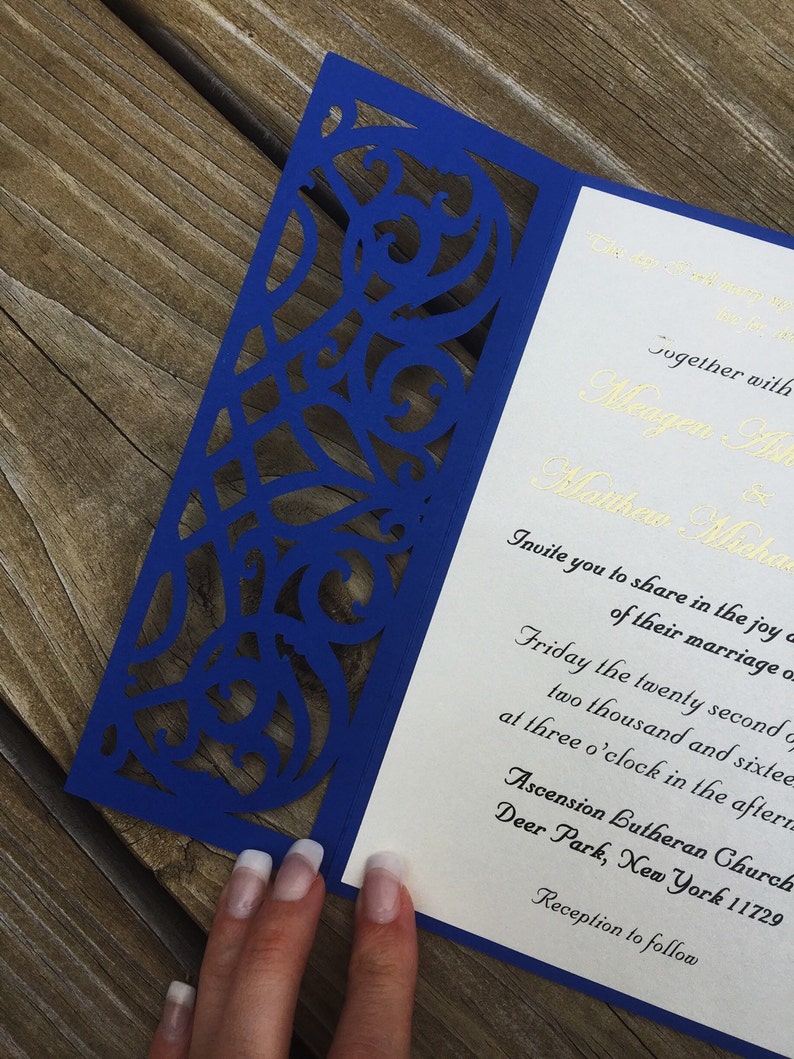 This day I will marry my
live for, 
Together with
Meagen Ash
&
Matthew Michae
Invite you to share in the joy a
of their marriage on
Friday the twenty second of
two thousand and sixteen
at three o'clock in the afterno
Ascension Lutheran Church
Deer Park, New York 11729
Reception to follow